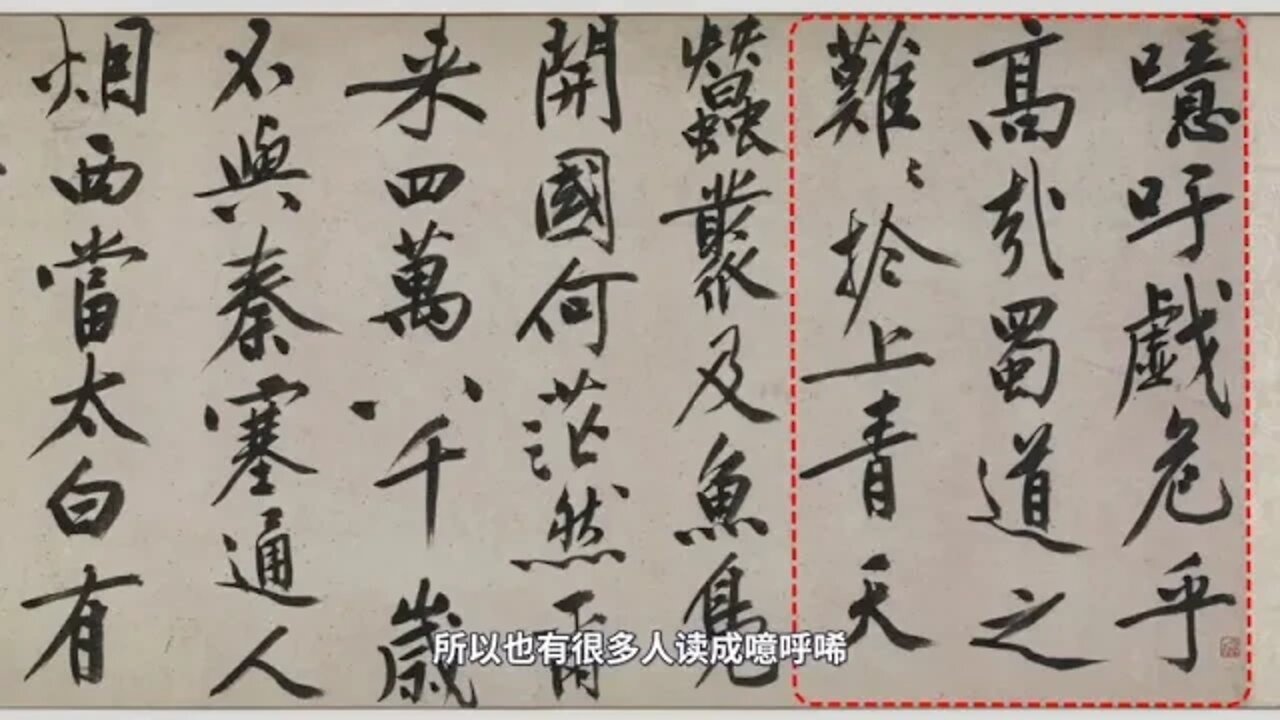 噫吁戯危乎
高哉蜀道之
難〻扵上青天
蠶叢及魚鳧
開國何茫然爾
来四萬八千歲
不與秦塞通人
烟西當太白有
所以也有很多人读成噫呼唏